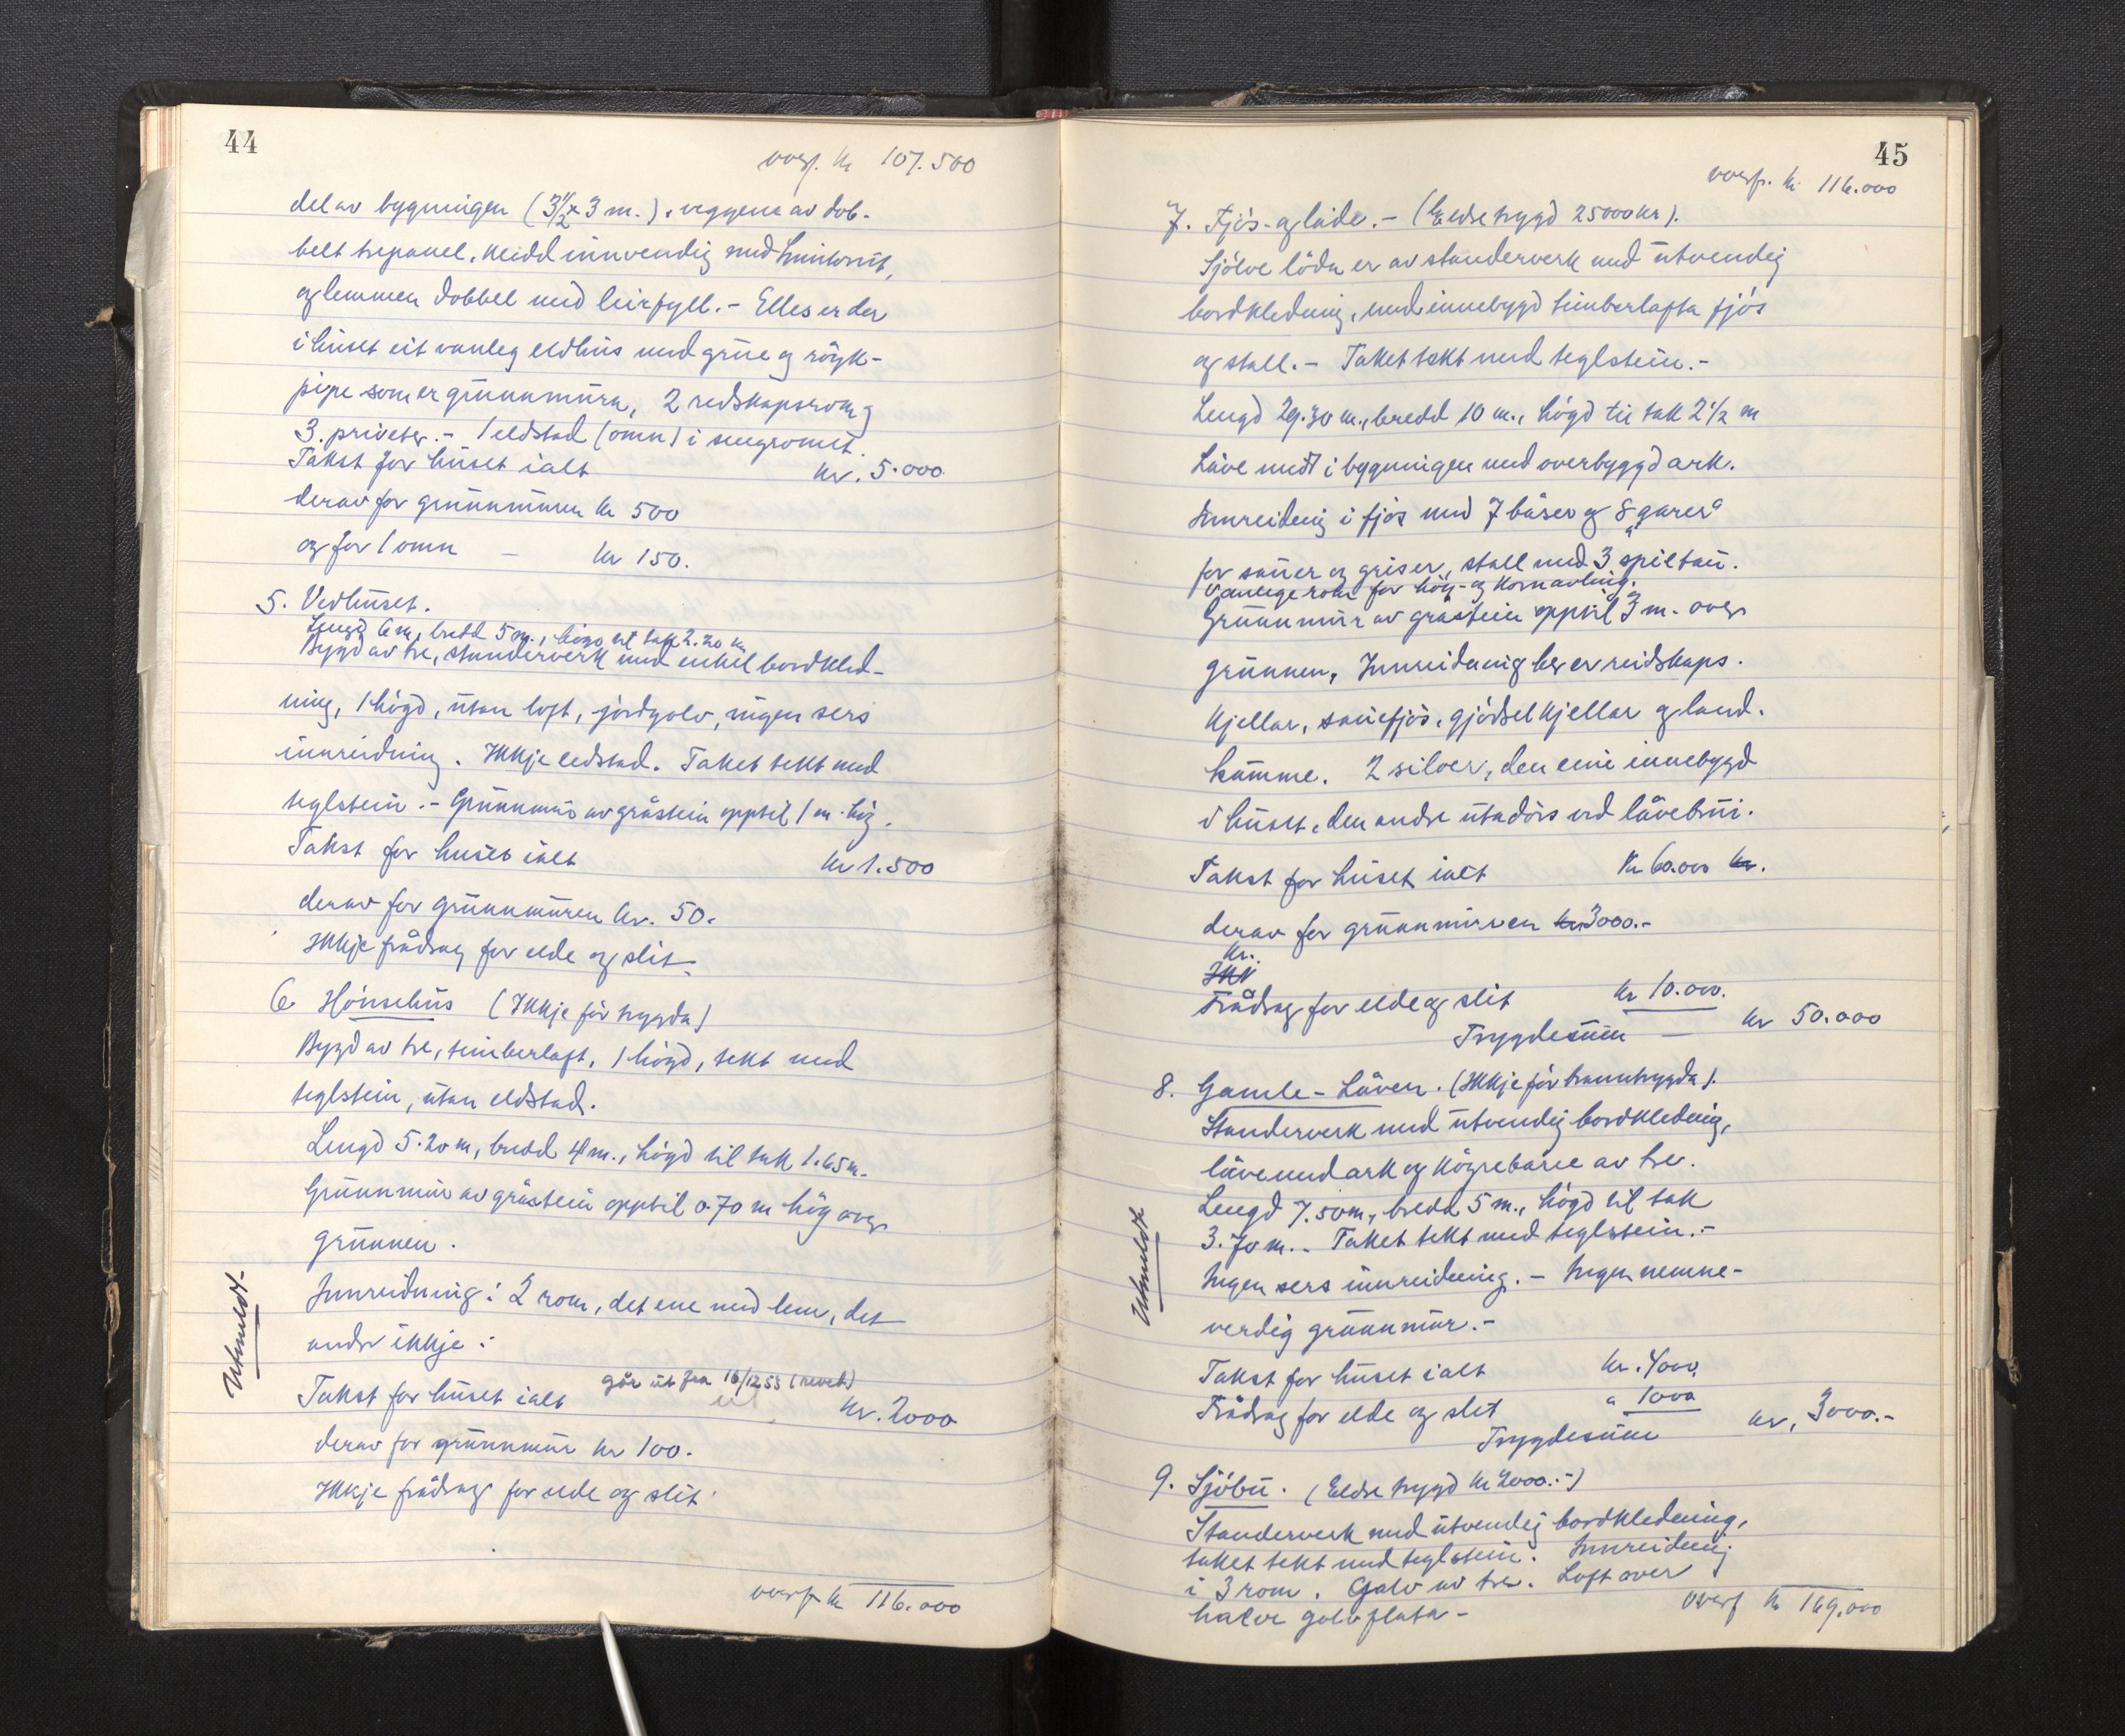 44
overf. kr 107.500
del av bygningen (3½ x 3 m.), veggene av dob-
belt trepanel, kledd innvendig med huntonit,
og lemmen dobbel med leirfyll. - Elles er der
i huset eit vanleg eldhus med grue og røyk-
pipe som er grunnmura, 2 redskapsrom og
3. priveter. - 1 eldstad (omn) i
Takst for huset ialt kr. 5.000
derav for grunnmuren kr 500
og for 1 omn - kr 150.
5. Vedhuset.
Lengd 6 m, bredd 5 m., högd til tak 2.20 m
Bygd av tre, standerverk med enkel bordkled-
ning, 1 högd, utan loft, jordgolv, ingen sers
innreidning. Ikkje eldstad. Taket tekt med
teglstein. - Grunnmur av gråstein opptil 1 m. høg.
Takst for huset ialt kr 1.500
derav for grunnmuren kr. 50.
Ikkje frådrag for elde og slit.
6 Hönsehus (Ikkje för trygda)
Bygd av tre, timberlaft, 1 högd, tekt med
teglstein, utan eldstad.
Lengd 5.20 m, bredd 4 m., högd til tak 1.65 m.
Grunnmur av gråstein opptil 0.70 m høg over
grunnen.
Innreidning: 2 rom, det ene med lem, det
andre ikkje.
Utmeldt
går ut fra 16/12 53 (revet)
Takst for huset ialt kr. 2000
derav for grunnmur kr 100.
Ikkje frådrag for elde og slit.
overf kr 116.000
45
overf. kr. 116.000
7. Fjös- og löde. - (Eldre trygd 25000 kr).
Sjölve löda er av standerverk med utvendig
bordkledning, med innebygd timberlafta fjös
og stall. - Taket tekt med teglstein. -
Lengd 29.30 m., bredd 10 m., högd til tak 2½ m
Låve midt i bygningen med overbyggd ark.
Innreidning i fjös med 7 båser og 8 "garer"
for sauer og griser, stall med 3 spiltau.
Vanlege rom for höy- og kornavling.
Grunnmur av gråstein opptil 3 m. over
grunnen. Innreidning her er reidskaps-
kjellar, sauefjös, gjödselkjellar og land-
kumme. 2 siloer, den eine innebygd
i huset, den andre utadörs ved låvebrui.
Takst for huset ialt kr 60.000 kr.
derav for grunnmuren kr 3000.-
kr.
Ikk
Frådrag for elde og slit kr 10.000.
Trygdesum - kr 50.000
8. Gamle-Låven. (Ikkje för branntrygda).
Standerverk med utvendig bordkledning,
låve med ark og av tre.
Lengd 7.50 m, bredd 5 m., högd til tak
3.70 m.. Taket tekt med teglstein. -
Ingen sers innreidning. - Ingen nemne-
verdig grunnmur. -
Utmeldt
Takst for huset ialt kr. 4000.
Frådrag for elde og slit " 1000
Trygdesum kr. 3000.-
9. Sjöbu. (Eldre trygd kr 2000.-)
Standerverk med utvendig bordkledning,
taket tekt med teglstein. Innreidning
i 3 rom. Golv av tre. Loft over
halve golvflata -
overf kr 169.000